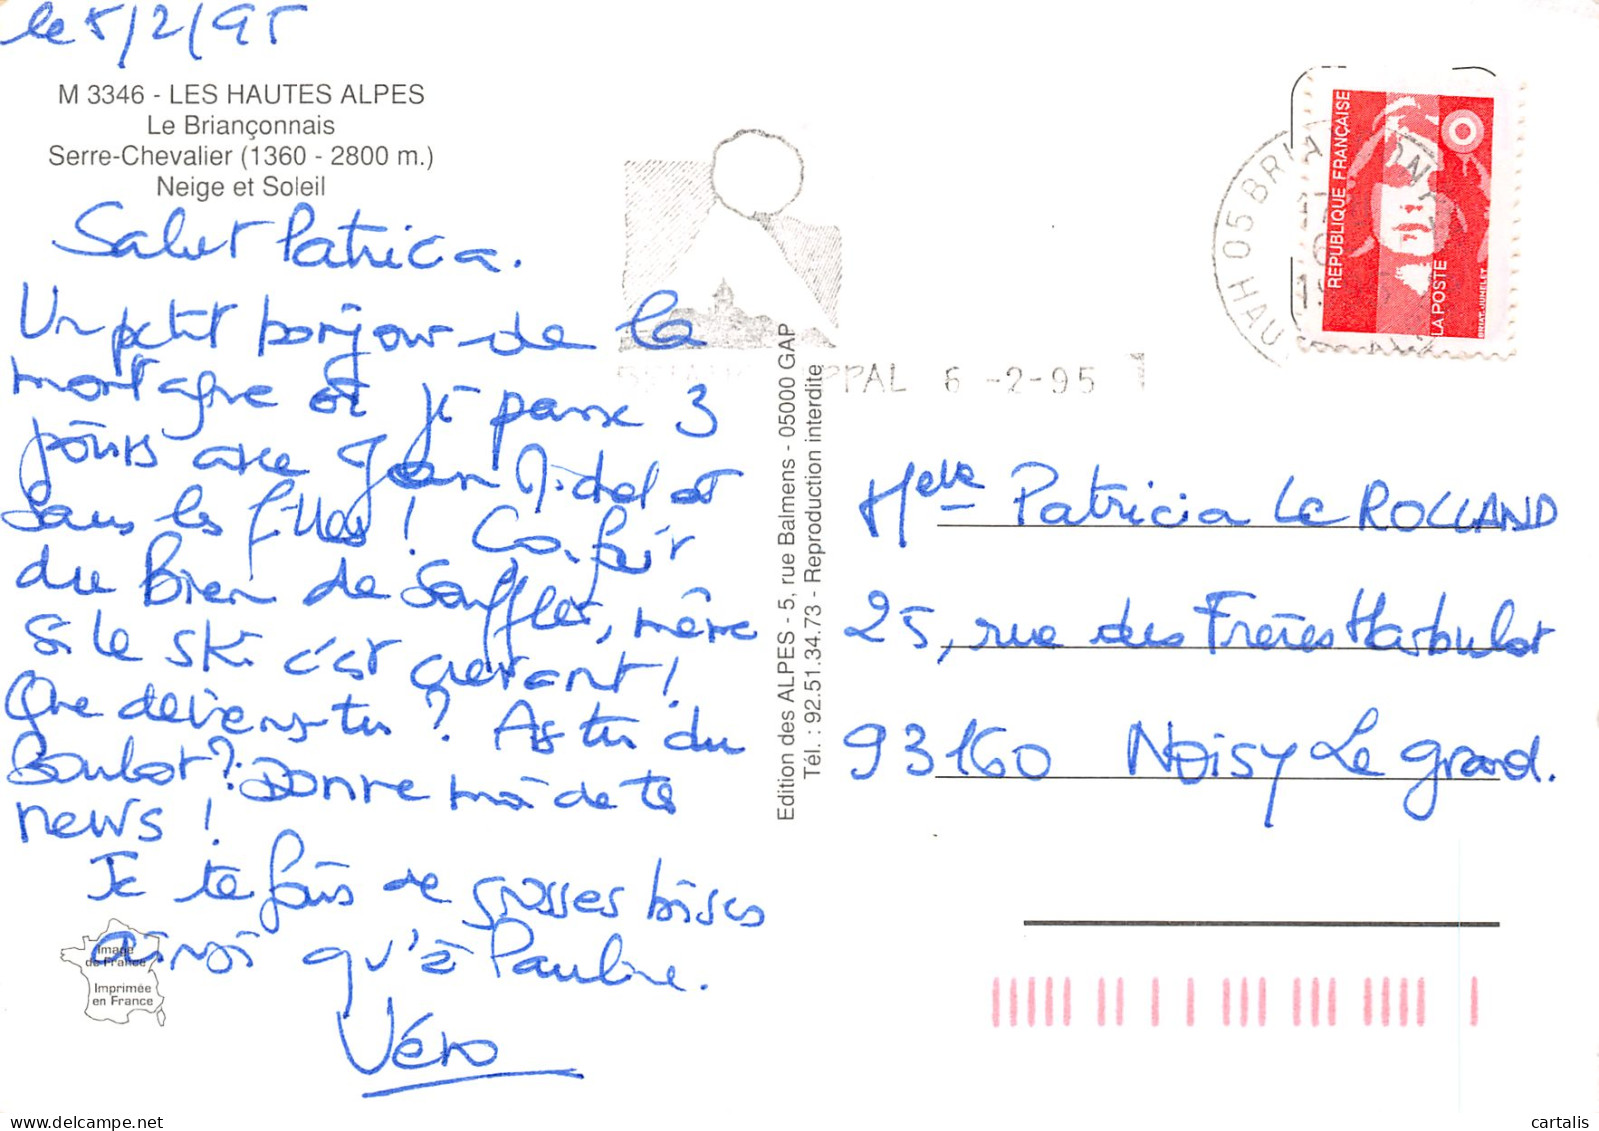 le 5/2/95
M 3346 - LES HAUTES ALPES
Le Briançonnais
Serre-Chevalier (1360 - 2800 m.)
Neige et Soleil
Salut Patricia.
Un petit bonjour de la
montagne où je passe 3
jours avec Jean Michel et
sans les filles! Ca fait
du Bien de souffler, même
si le ski c'est crevant!
Que deviens-tu? As tu du
Boulot? Donne moi de tes
news!
Je te fais de grosses bises
ainsi qu'à Pauline.
Véro
Image
de France
Imprimée
en France
Edition des ALPES - 5, rue Balmens - 05000 GAP
Tél. : 92.51.34.73 - Reproduction interdite
PPAL 6 -2-95
05 BRIA
HAU
RÉPUBLIQUE FRANÇAISE
LA POSTE
BRIAT-JUMELET
Melle Patricia Le ROLLAND
25, rue des Frères Harbulot
93160 Noisy Le Grand.
cartalis